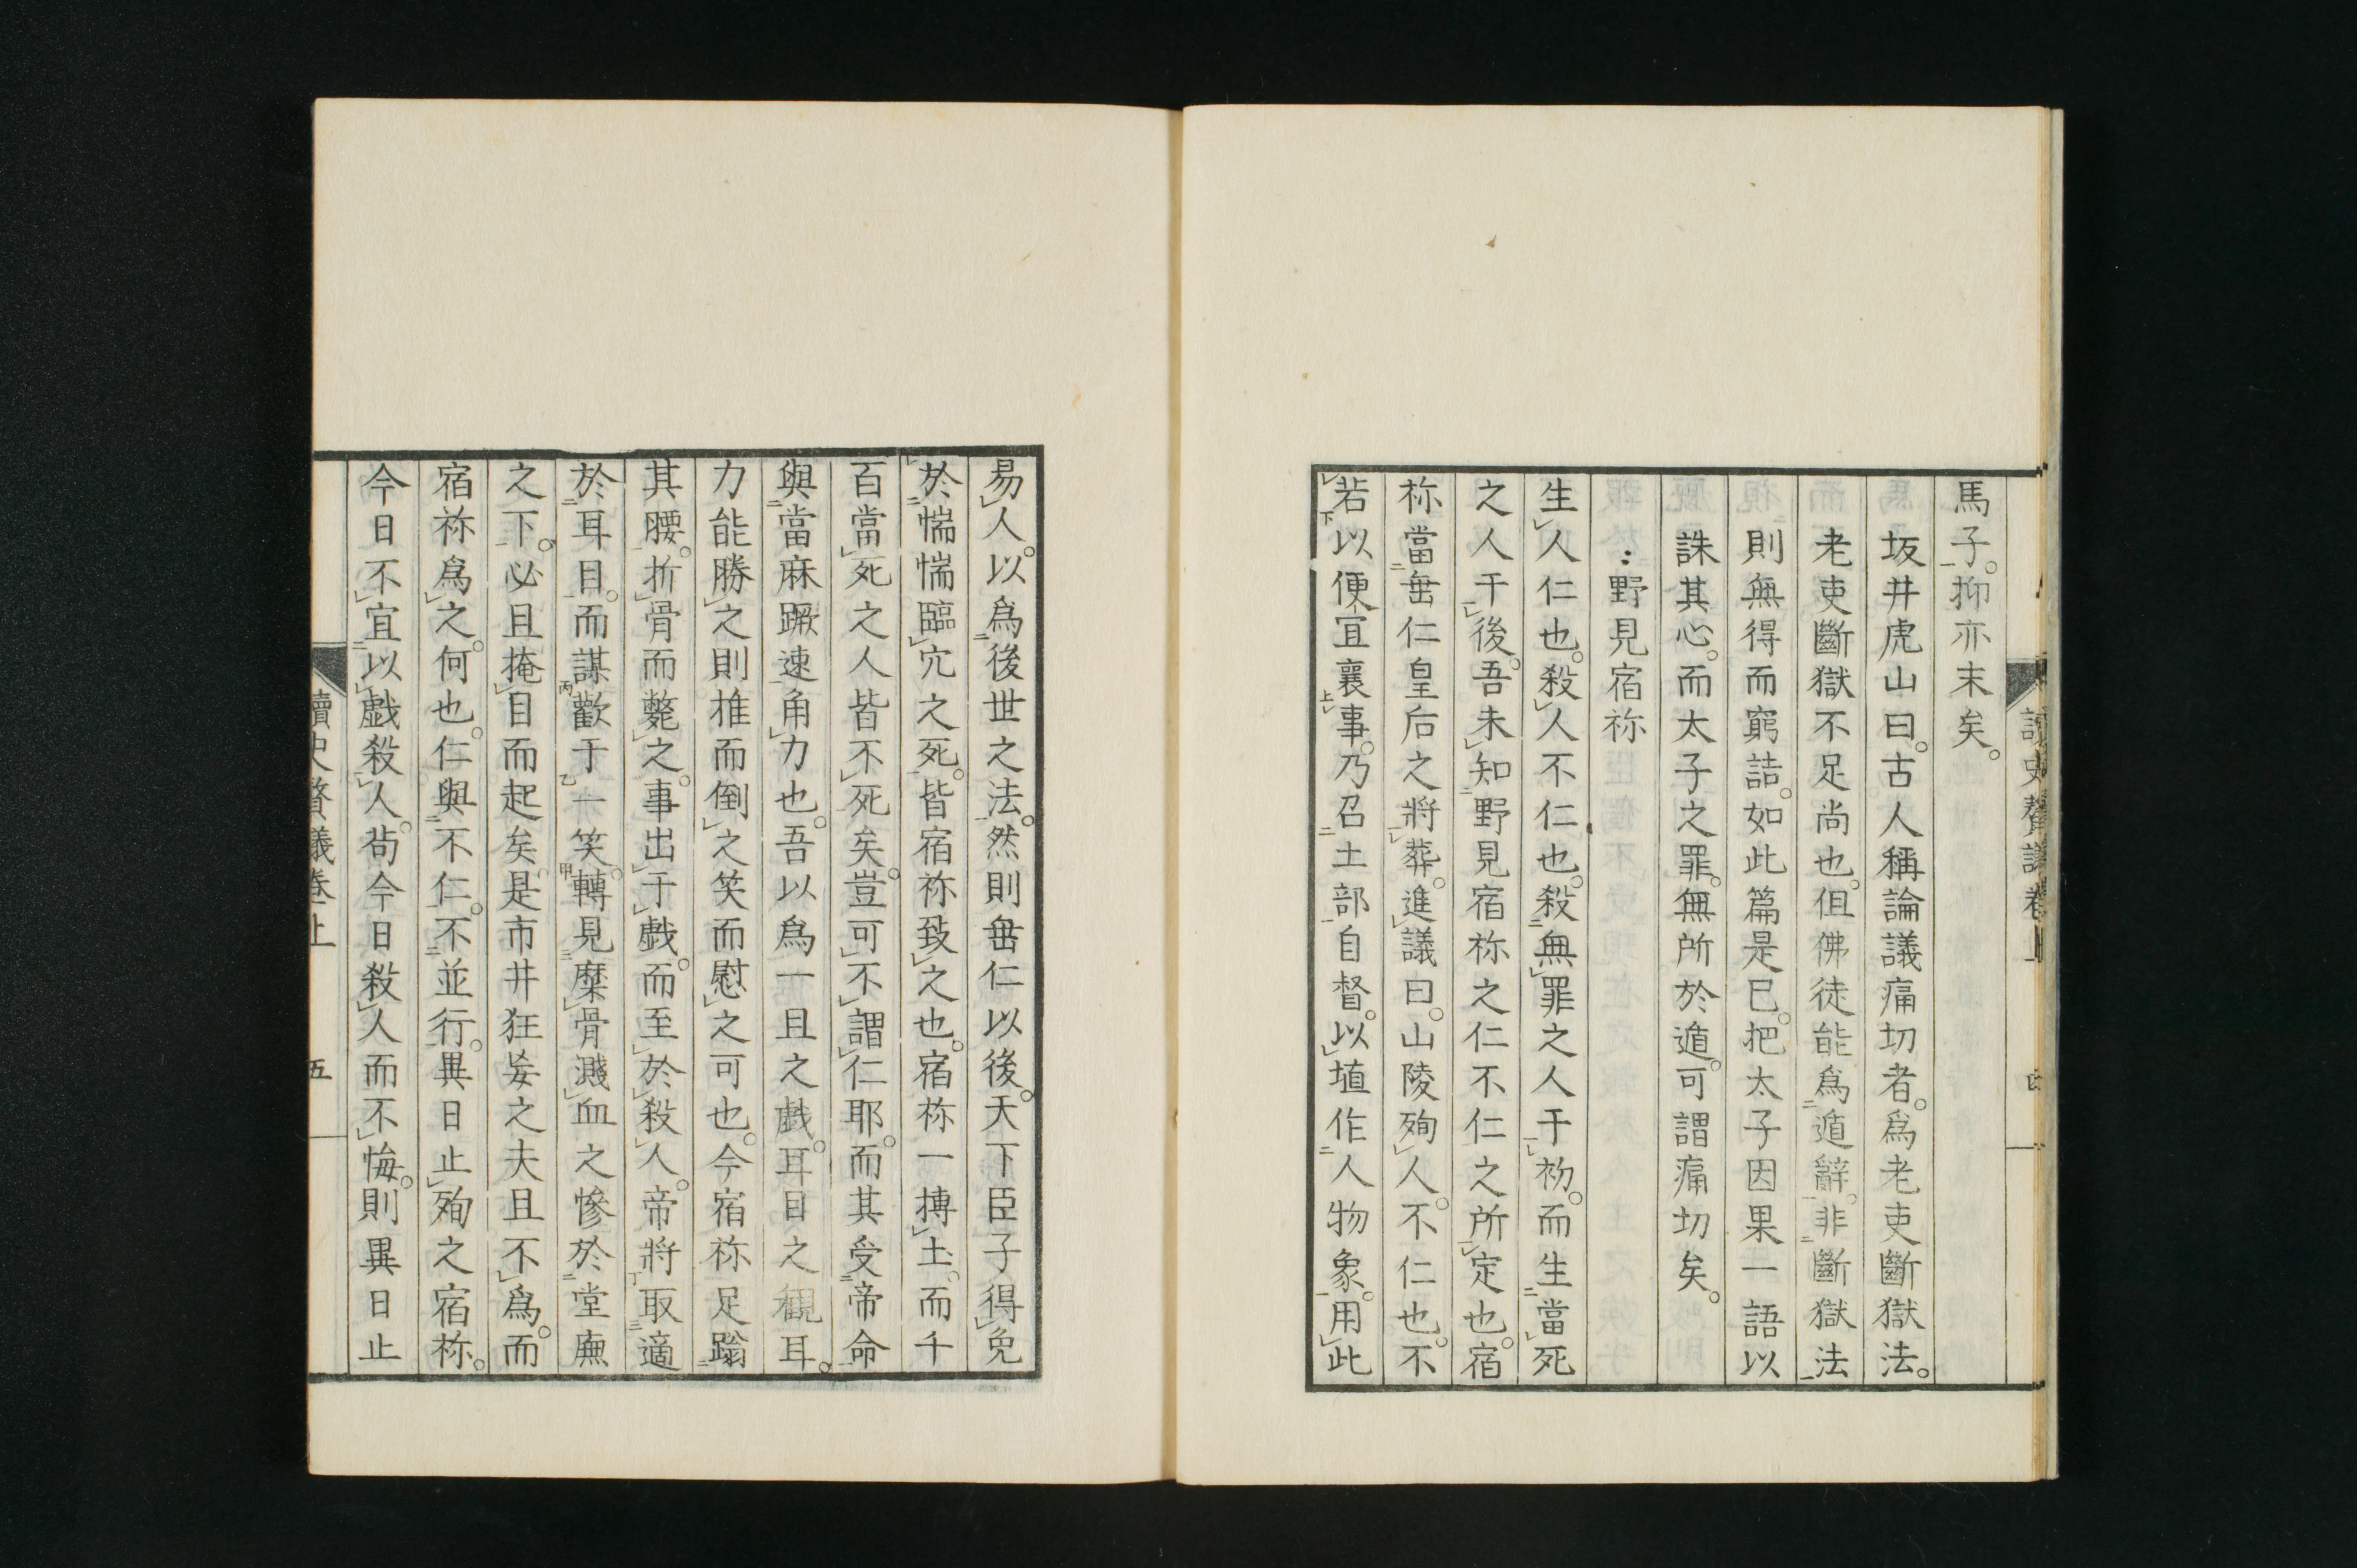 馬子。抑亦末矣。
坂井虎山曰。古人稱論議痛切者。爲老吏斷獄法。
老吏斷獄不足尚也。但佛徒能爲遁辭。非斷獄法
則無得而窮詰。如此篇是已。把太子因果一語以
誅其心。而太子之罪。無所於遁。可謂痛切矣。
野見宿祢
生人仁也。殺人不仁也。殺無罪之人于初。而生當死
之人于後。吾未知野見宿祢之仁不仁之所定也。宿
祢當垂仁皇后之將葬。進議曰。山陵殉人。不仁也。不
若以便宜襄事。乃召土部。自督。以埴作人物象。用此
讀史贅議卷上
易人。以爲後世之法。然則垂仁以後。天下臣子得免
於惴惴臨穴之死。皆宿祢致之也。宿祢一摶土。而千
百當死之人皆不死矣。豈可不謂仁耶。而其受帝命
與當麻蹶速角力也。吾以爲一旦之戲。耳目之観耳。
力能勝之則推而倒之笑而慰之可也。今宿祢足蹹
其腰。折骨而斃之。事出于戲。而至於殺人。帝將取適
於耳目。而謀歡于一笑。轉見糜骨濺血之慘於堂廡
之下。必且掩目而起矣。是市井狂妄之夫且不爲。而
宿祢爲之。何也。仁與不仁。不並行。異日止殉之宿祢。
今日不宜以戲殺人。茍今日殺人而不悔。則異日止
讀史贅議卷上
五